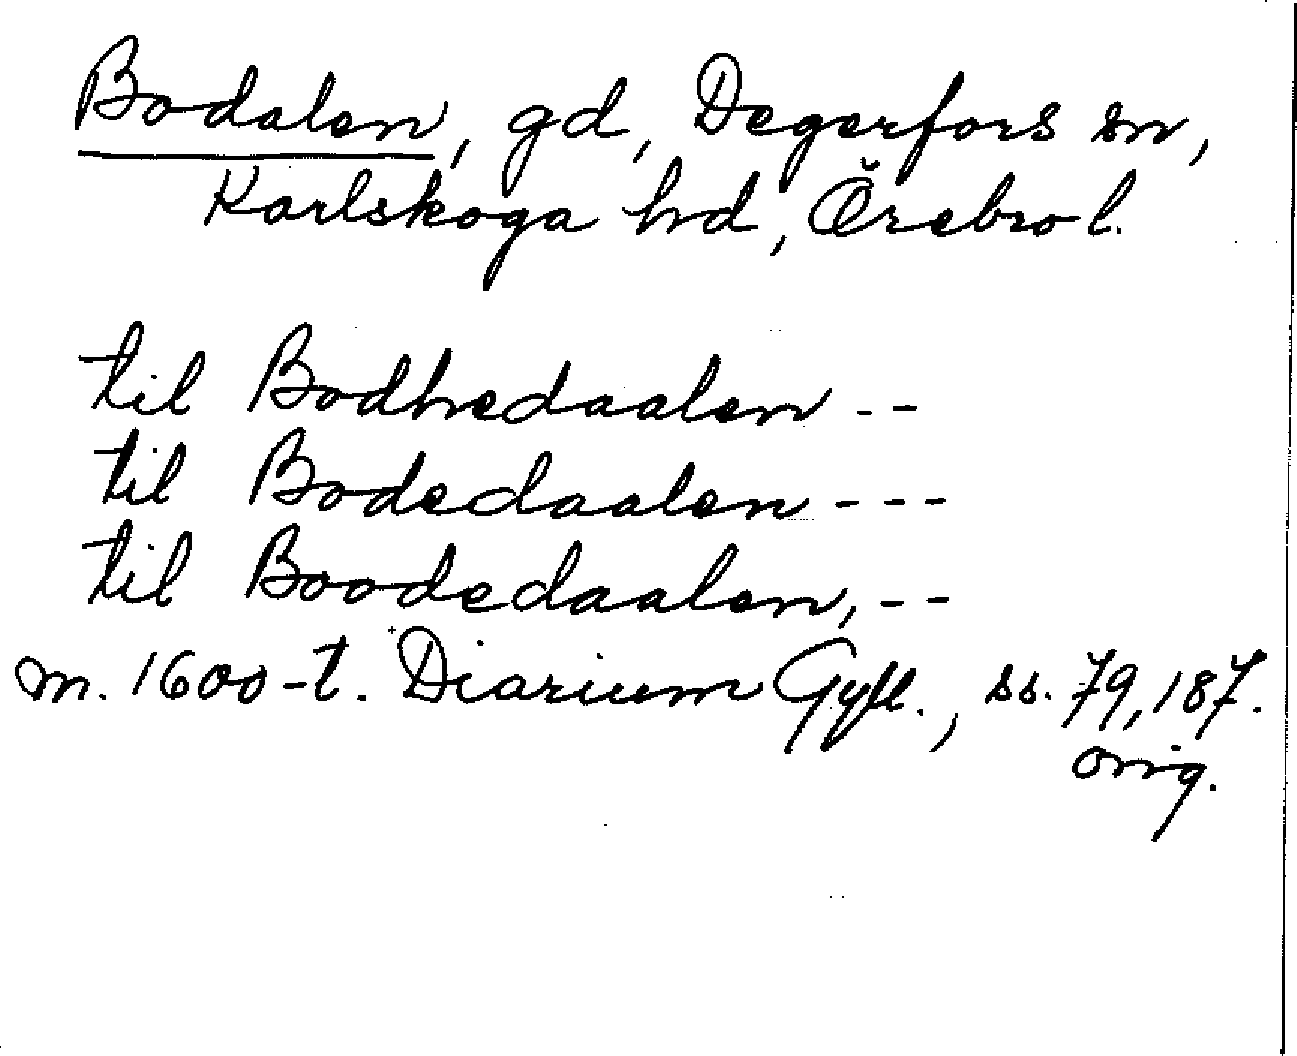 Bodalen, gd, Degerfors sn,
Karlskoga hd, Örebro l.
til Bodhedaalen - -
til Bodedaalen - - -
til Boodedaalen, - -
m. 1600-t. Diarium Gyll., ss. 79, 187.
orig.